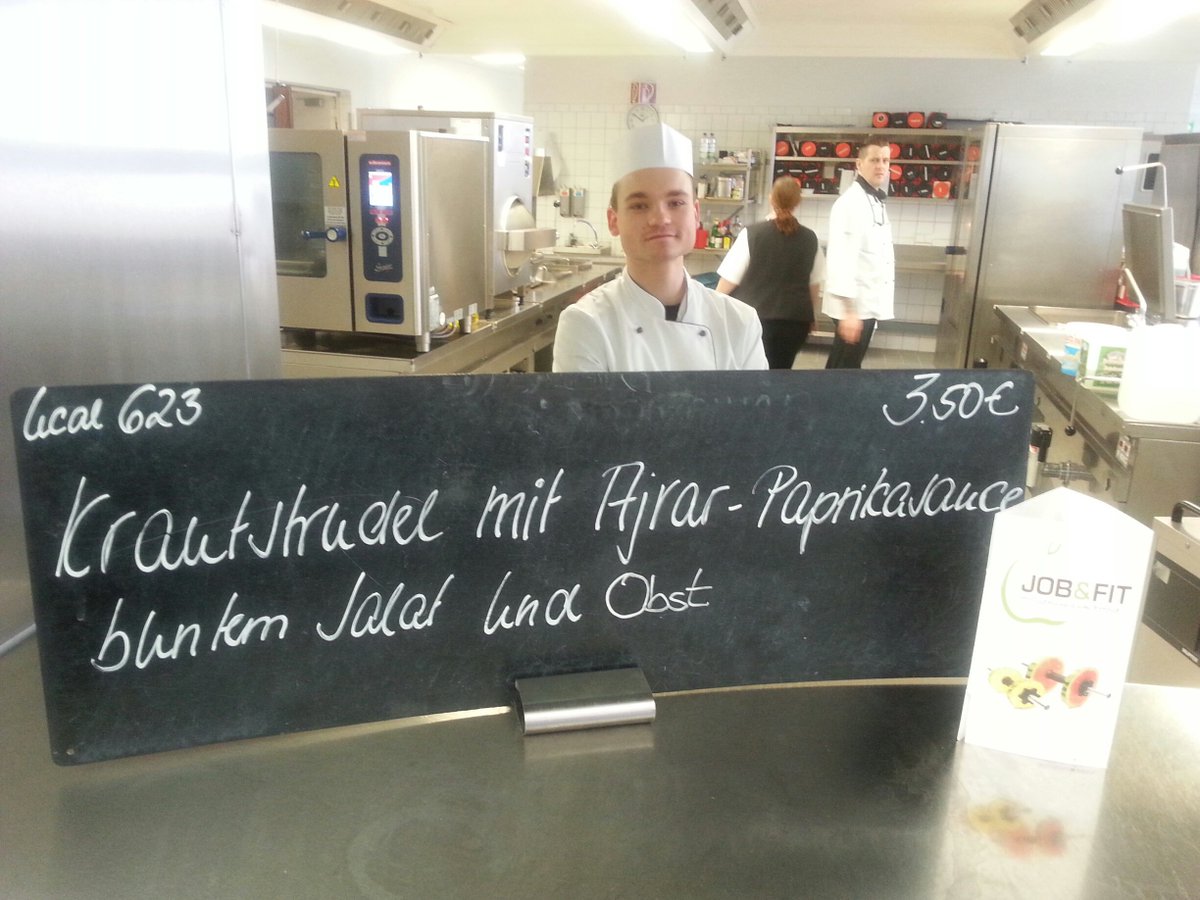 kcal 623
3.50€
Krautstrudel mit Ajvar-Paprikasauce
buntem Salat und Obst
JOB&FIT